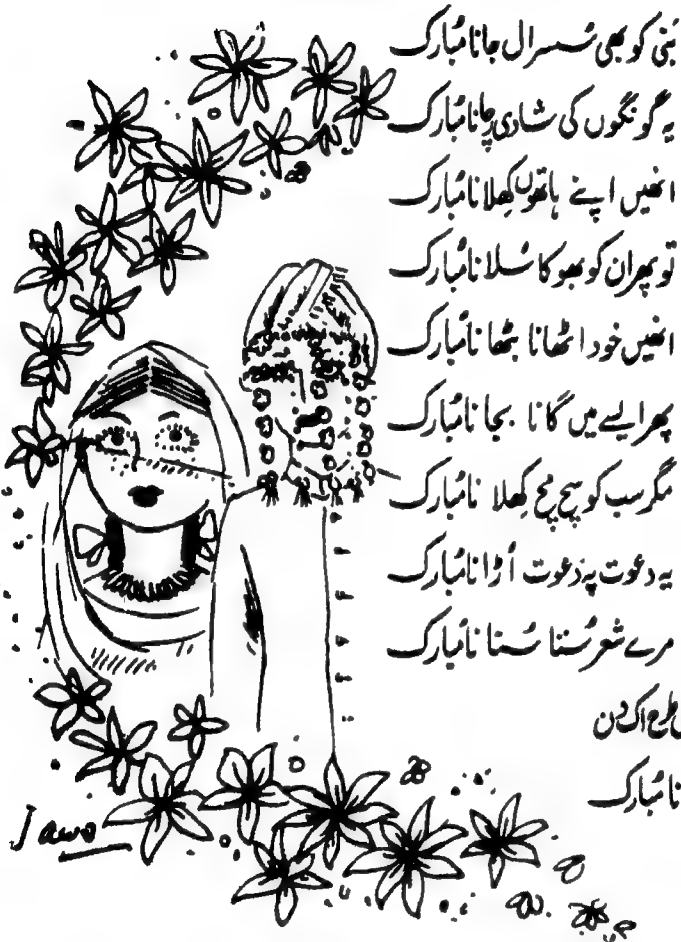 بنی کو بھی سُسرال جانا مُبارک
یہ گونگوں کی شادی رچانا مُبارک
انھیں اپنے ہاتھوں کِھلانا مُبارک
تو پھر ان کو بھوکا سُلانا مُبارک
انھیں خود اٹھانا بٹھانا مُبارک
پھر ایسے میں گانا بجانا مُبارک
مگر سب کو سچ مچ کِھلانا مُبارک
یہ دعوت پہ دعوت اُڑانا مُبارک
مرے شعر سُننا سُنانا مُبارک
طرح اک دن
نا مُبارک
Jawo